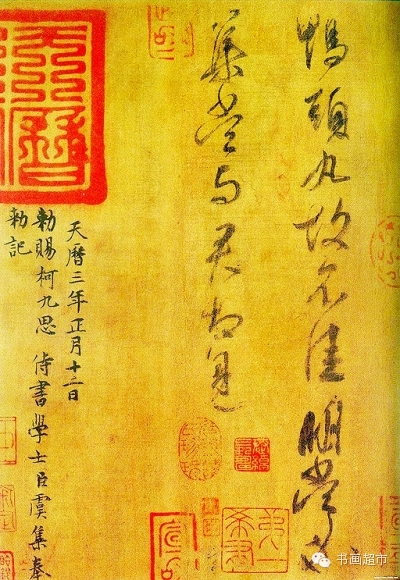 鴨頭丸故不佳明當必
集當與君相見
天曆三年正月十二日
勅賜柯九思侍書學士臣虞集奉
勅記
书画超市